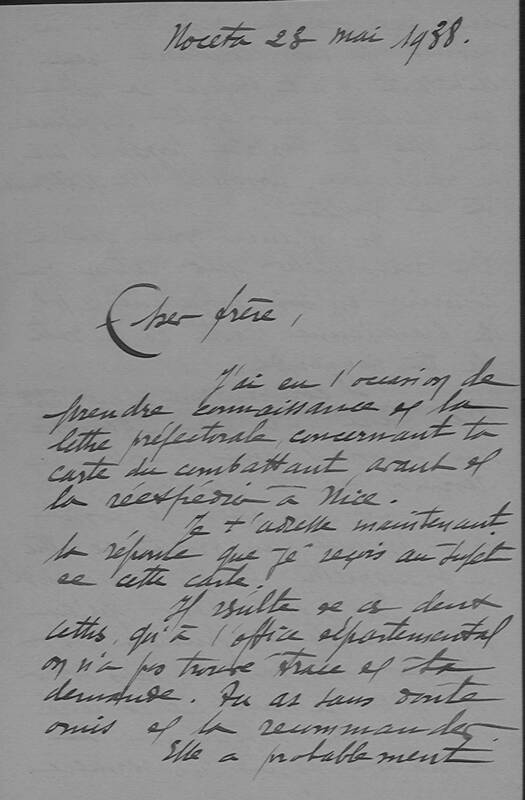 Noceta 23 mai 1938.
Cher frère,
J'ai eu l'occasion de
prendre connaissance de la
lettre préfectorale, concernant ta
carte du combattant avant de
la réexpédier à Nice.
Je t'adresse maintenant
la réponse que je reçois au sujet
de cette carte.
Il résulte de ces deux
lettres, qu'à l'office départemental
on n'a pas trouvé trace de ta
demande. Tu as sans doute
omis de la recommander.
Elle a probablement